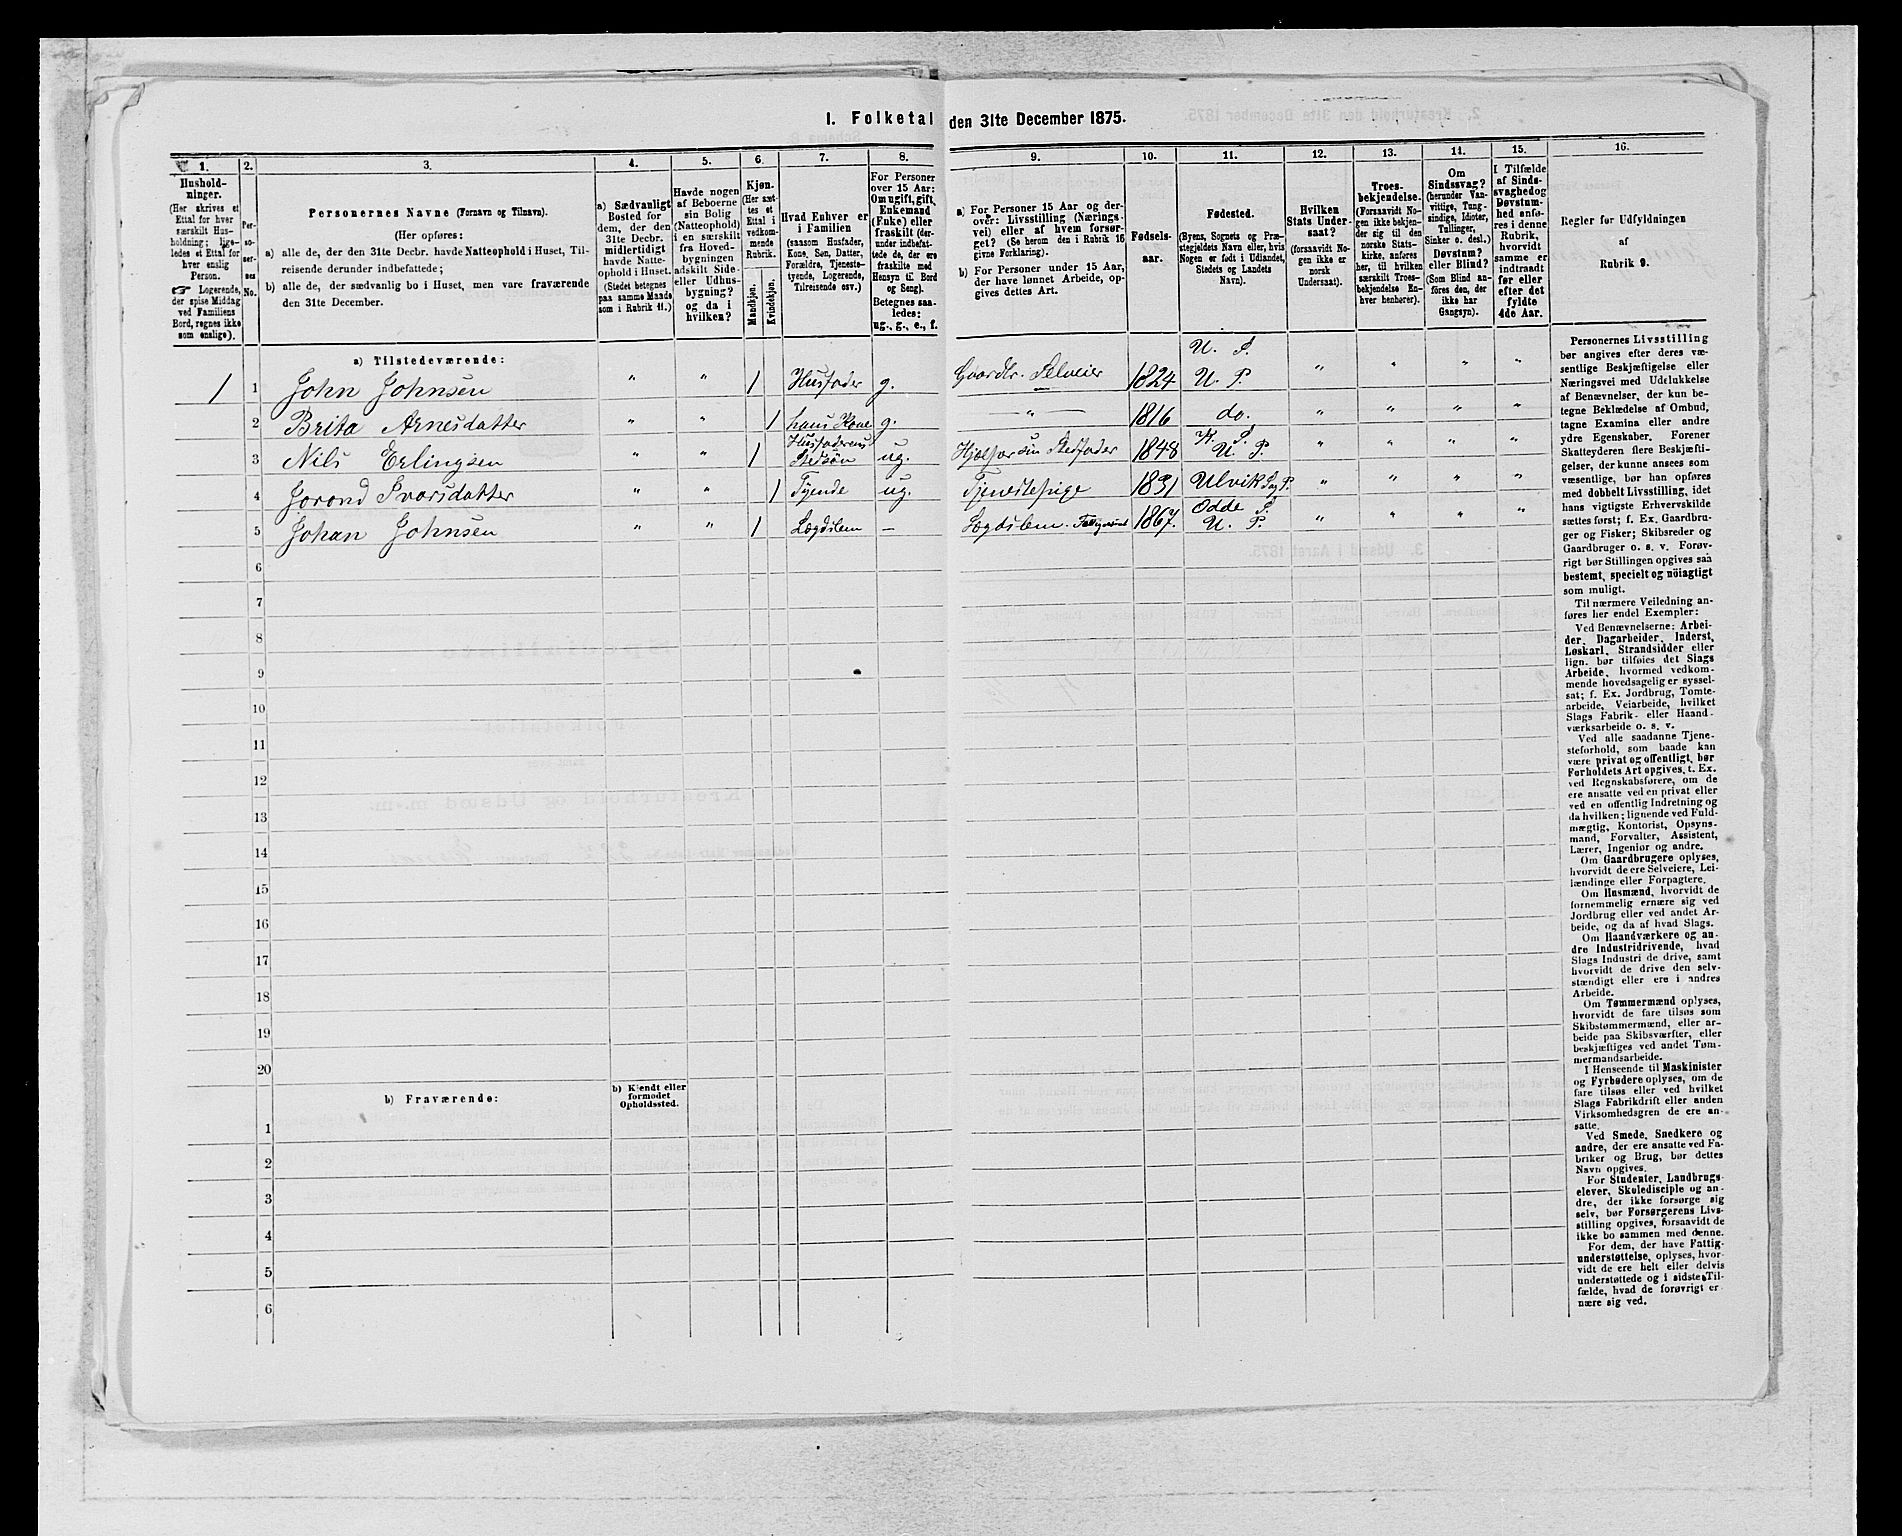 I. Folketal den 31te December 1875.
1. 2. 3. 4. 5. 6. 7. 8. 9. 10. 11. 12. 13. 14. 15. 16.
Hushold-
ninger.
(Her skrives et
Ettal for hver
særskilt Hus-
holdning; lige-
ledes et Ettal for
hver enslig
Person.
☞ Logerende,
der spise Middag
ved Familiens
Bord, regnes ikke
som enslige).
Per-
so-
ner-
nes
No.
Personernes Navne (Fornavn og Tilnavn).
(Her opføres:
a) alle de, der den 31te Decbr. havde Natteophold i Huset, Til-
reisende derunder indbefattede;
b) alle de, der sædvanlig bo i Huset, men vare fraværende
den 31te December.
a) Sædvanligt
Bosted for
dem, der den
31te Decbr.
midlertidigt
havde Natte-
ophold i Huset.
(Stedet betegnes
paa samme Maade
som i Rubrik 11.)
Havde nogen
af Beboerne
sin Bolig
(Natteophold)
i en særskilt
fra Hoved-
bygningen
adskilt Side-
eller Udhus-
bygning?
og da i
hvilken?
Kjøn.
(Her sæt-
tes et
Ettal i
vedkom-
mende
Rubrik.
Mandkjøn.
Kvindekjøn.
Hvad Enhver er
i Familien
(saasom Husfader,
Kone, Søn, Datter,
Forældre, Tjeneste-
tyende, Logerende,
Tilreisende osv.)
For Personer
over 15 Aar:
Om ugift, gift,
Enkemand
(Enke) eller
fraskilt (der-
under indbefat-
tede de, der ere
fraskilte med
Hensyn til Bord
og Seng).
Betegnes saa-
ledes:
ug., g., e., f.
a) For Personer 15 Aar og der-
over: Livsstilling (Nærings-
vei) eller af hvem forsør-
get? (Se herom den i Rubrik 16
givne Forklaring).
b) For Personer under 15 Aar,
der have lønnet Arbeide, op-
gives dettes Art.
Fødsels-
aar.
Fødested.
(Byens, Sognets og Præ-
stegjeldets Navn eller, hvis
Nogen er født i Udlandet,
Stedets og Landets
Navn).
Hvilken
Stats Under-
saat?
(forsaavidt No-
gen ikke er
norsk
Undersaat).
Troes-
bekjendelse.
(Forsaavidt No-
gen ikke bekjen-
der sig til den
norske Stats-
kirke, anføres
her, til hvilken
særskilt Troes-
bekjendelse En-
hver henhører).
Om
Sindssvag?
(herunder Van-
vittige, Tung-
sindige, Idioter,
Tullinger,
Sinker o. desl.)
Døvstum?
eller Blind?
(Som Blind an-
føres den, der
ikke har
Gangsyn).
I Tilfælde
af Sinds-
svaghed og
Døvstum-
hed anfø-
res i denne
Rubrik,
hvorvidt
samme er
indtraadt
før eller
efter det
fyldte
4de Aar.
Regler før Udfyldningen
af
Rubrik 9.
a) Tilstedeværende:
U. S.
1 1 John Johnsen " " 1 Husfader g. Gaardbr. Selveier 1824 U. P. " " " "
2 Brita Arnesdatter " " 1 hans Kone g. — " — 1816 do. " " " "
Husfaderens K. S.
3 Nils Erlingsen " " 1 Stedsøn ug. Hjælper sin Stedfader 1848 U. P. " " " "
4 Jorond Ivarsdatter " " 1 Tyende ug. Tjenestepige 1831 Ulvik S og P. " " " "
Odde S.
5 Johan Johnsen " " 1 Lægdslem — Lægdslem. 1867. U. P. " " " "
6
7
8
9
10
11
12
13
14
15
16
17
18
19
20
b) Fraværende:
b) Kjendt eller
formodet
Opholdssted.
1
2
3
4
5
6
Personernes Livsstilling
bør angives efter deres væ-
sentlige Beskjæftigelse eller
Næringsvei med Udelukkelse
af Benævnelser, der kun be-
tegne Beklædelse af Ombud,
tagne Examina eller andre
ydre Egenskaber. Forener
Skatteyderen flere Beskjæfti-
gelser, der kunne ansees som
væsentlige, bør han opføres
med dobbelt Livsstilling, idet
hans vigtigste Erhvervskilde
sættes først; f. Ex. Gaardbru-
ger og Fisker; Skibsreder og
Gaardbruger o. s. v. Forøv-
rigt bør Stillingen opgives saa
bestemt, specielt og nöiagtigt
som muligt.
Til nærmere Veiledning an-
føres her endel Exempler:
Ved Benævnelserne: Arbei-
der, Dagarbeider, Inderst,
Løskarl, Strandsidder eller
lign. bør tilføies det Slags
Arbeide, hvormed vedkom-
mende hovedsagelig er syssel-
sat; f. Ex. Jordbrug, Tomte-
arbeide, Veiarbeide, hvilket
Slags Fabrik- eller Haand-
værksarbeide o. s. v.
Ved alle saadanne Tjene-
steforhold, som baade kan
være privat og offentligt, bør
Forholdets Art opgives, t. Ex.
ved Regnskabsførere, om de
ere ansatte ved en privat eller
ved en offentlig Indretning og
da hvilken; lignende ved Fuld-
mægtig, Kontorist, Opsyns-
mand, Forvalter, Assistent,
Lærer, Ingeniør og andre.
Om Gaardbrugere oplyses,
hvorvidt de ere Selveiere, Lei-
lændinge eller Forpagtere.
Om Husmænd, hvorvidt de
fornemmelig ernære sig ved
Jordbrug eller ved andet Ar-
beide, og da af hvad Slags.
Om Haandværkere og an-
dre Industridrivende, hvad
Slags Industri de drive, samt
hvorvidt de drive den selv-
stændigt eller ere i andres
Arbeide.
Om Tømmermænd oplyses,
hvorvidt de fare tilsøs som
Skibstømmermænd, eller ar-
beide paa Skibsværfter, eller
beskjæftiges ved andet Tøm-
mermandsarbeide.
I Henseende til Maskinister
og Fyrbødere oplyses, om de
fare tilsøs eller ved hvilket
Slags Fabrikdrift eller anden
Virksomhedsgren de ere an-
satte.
Ved Smede, Snedkere og
andre, der ere ansatte ved Fa-
briker og Brug, bør dettes
Navn opgives.
For Studenter, Landbrugs-
elever, Skoledisciple og an-
dre, der ikke forsørge sig
selv, bør Forsørgerens Livs-
stilling opgives, forsaavidt de
ikke bo sammen med denne.
For dem, der have Fattig-
understøttelse, oplyses, hvor-
vidt de ere helt eller delvis
understøttede og i sidste Til-
fælde, hvad de forøvrigt er-
nære sig ved.